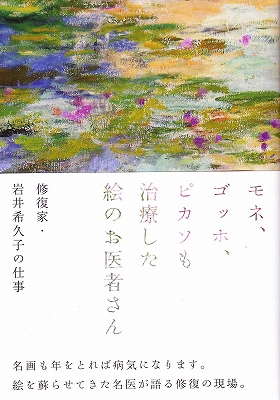 モネ、
ゴッホ、
ピカソも
治療した
絵のお医者さん
修復家・
岩井希久子の仕事
名画も年をとれば病気になります。
絵を蘇らせてきた名医が語る修復の現場。